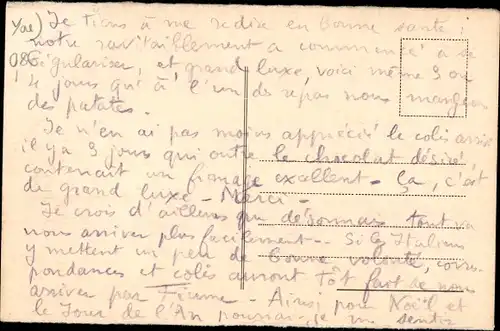 Je tiens à me redire en bonne santé,
notre ravitaillement a commencé à se
régulariser, et grand luxe, voici même 3 ou
4 jours qu'à l'un des repas nous mangeons
des patates.
Je n'en ai pas moins apprécié le colis arrivé
il y a 3 jours qui outre le chocolat désiré,
contenait un fromage excellent - Ça, c'est
du grand luxe - Merci -
Je crois d'ailleurs que désormais tout va
nous arriver plus facilement -- Si les Italiens
y mettent un peu de bonne volonté, corres-
pondances et colis auront tôt fait de nous
arriver par Fiume - Ainsi pour Noël et
le Jour de l'An pourrai-je